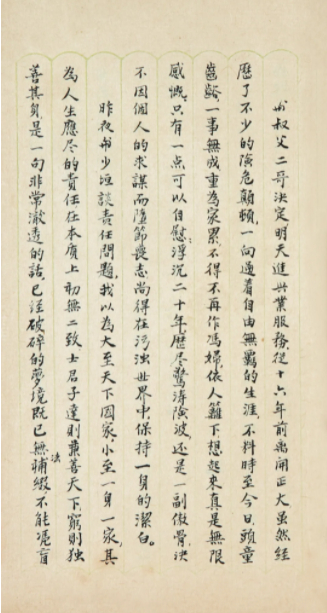 叔父二哥決定明天進興業服務從十六年前離開正大雖然經
歷了不少的險危顛頓，一向過着自由無羈的生涯，不料時至今日，頭童
齒豁，一事無成重為家累，不得不再作馮婦依人籬下想起來真是無限
感慨，只有一点可以自慰：浮沉二十年歷尽驚濤險波，还是一副傲骨，決
不因個人的求謀而隳節喪志尚得在污浊世界中保持一身的潔白。
昨夜少垣談責任問題，我以為大至天下國家，小至一身一家，其
為人生應尽的責任在本质上初無二致士君子達則兼善天下，窮則独
善其身，是一句非常澈透的話，已經破碎的夢境既已無法補綴不能凭盲